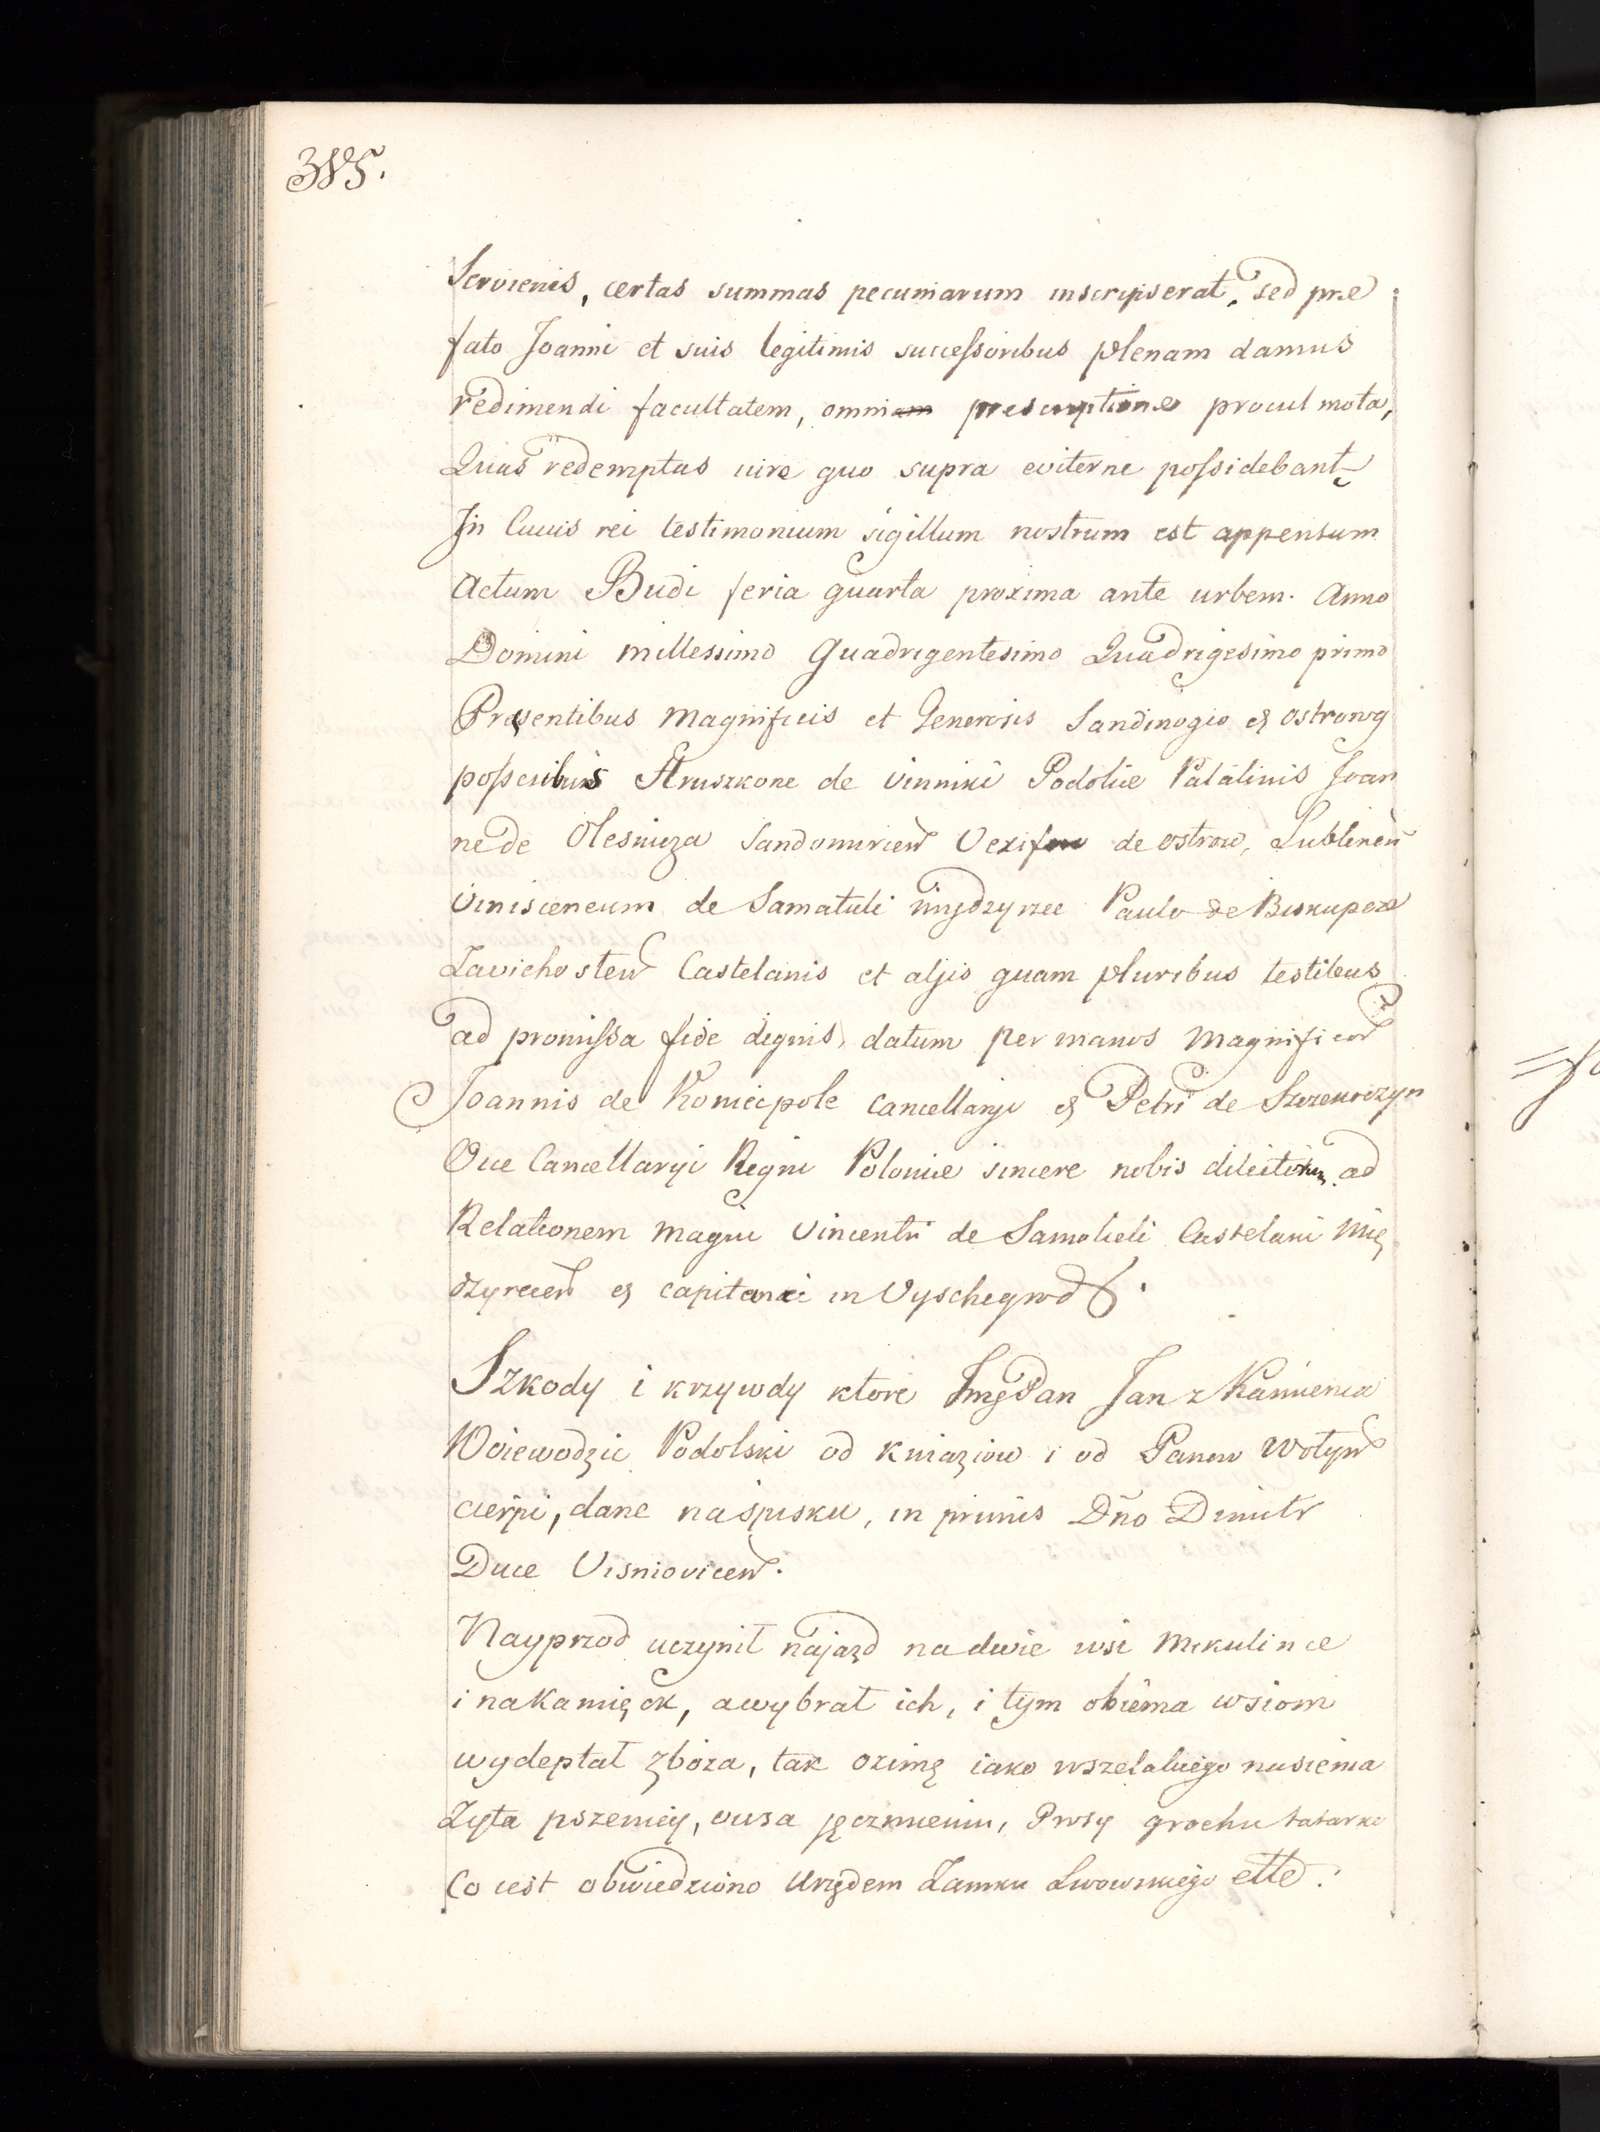 385.
Servienis, certas summas pecuniarum inscripserat, sed præ
fato Joanni et suis legitimis successoribus plenam damus
redimendi facultatem, omni prescriptione procul mota,
Quas redemptas iure quo supra eviterne possidebant
In Cuius rei testimonium sigillum nostrum est appensum
Actum Budi feria quarta proxima ante urbem. Anno
Domini millessimo Quadrigentesimo Quadrigesimo primo
Præsentibus Magnificis et Generosis Sandivogio & Ostrorog
Hruszkone de Vinniki Podoliæ Palatinis Joan
ne de Olesnicza Sandomirien de ostrow, Lublinen
de Samatuli międzyrzec Paulo de Biskupcze
Zavichosten Castelanis et alijs quam pluribus testibus
ad promissa fide dignis, datum per manus Magnificor
Joannis de Koniecpole cancellarji & Petri de Szczeurzyn
Vice Cancellaryi Regni Poloniæ sincere nobis dilectorum ad
Relationem Magni Vincentii de Samotuli Castelani Mię
dzyrecen & capitanei in Vyschegrod.
Szkody i krzywdy które Jmę Pan Jan z Kamienia
Woiewodzic Podolski od kniaziow i od Panow Wołyn
cierpi, dane na spisku, in primis Dño Dimitr
Duce Visniovicen.
Nayprzod uczynił najazd na dwie wsi Mikulince
i na Kamięck, a wybrał ich, i tym obiema wsiom
wydeptał zboza, tak ozimę iako wszelakiego nasienia
Zyta pszenicy, owsa jęczmieniu, Prosy grochu tatarki
Co iest obwiedziono Urzędem Zamku Lwowskiego ette: